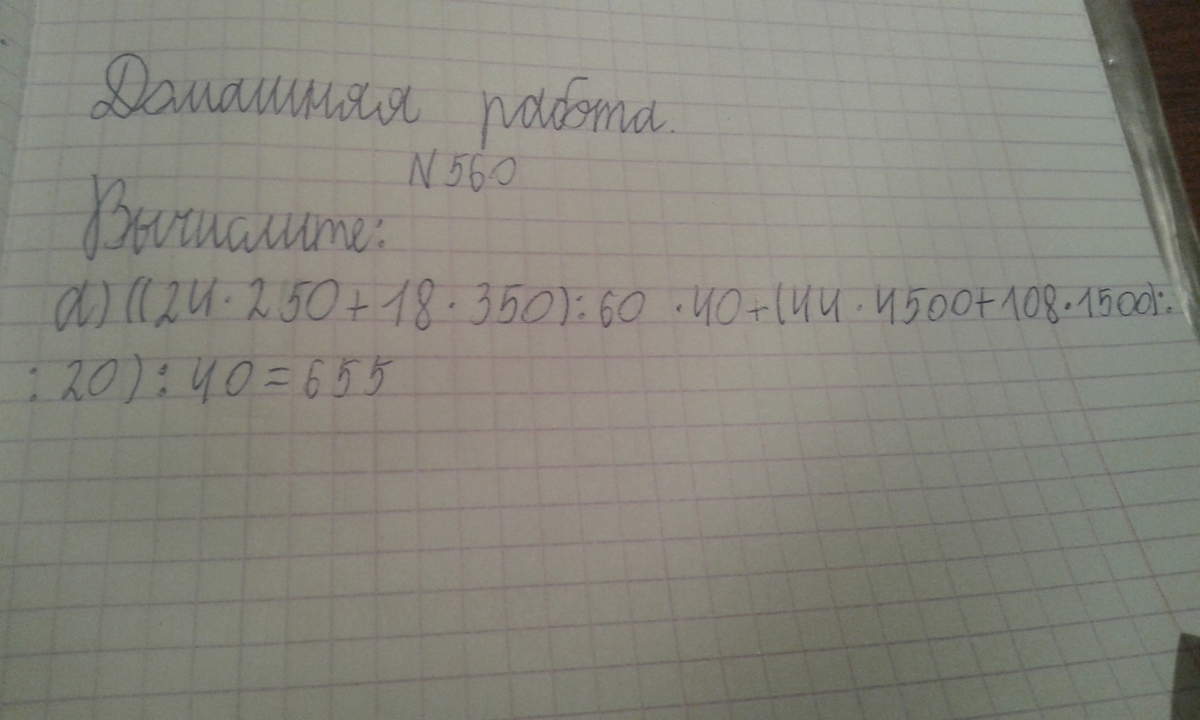 Домашняя работа.
N 560
Вычислите:
а) ((24 · 250 + 18 · 350) : 60 · 40 + (44 · 4500 + 108 · 1500) :
: 20) : 40 = 655